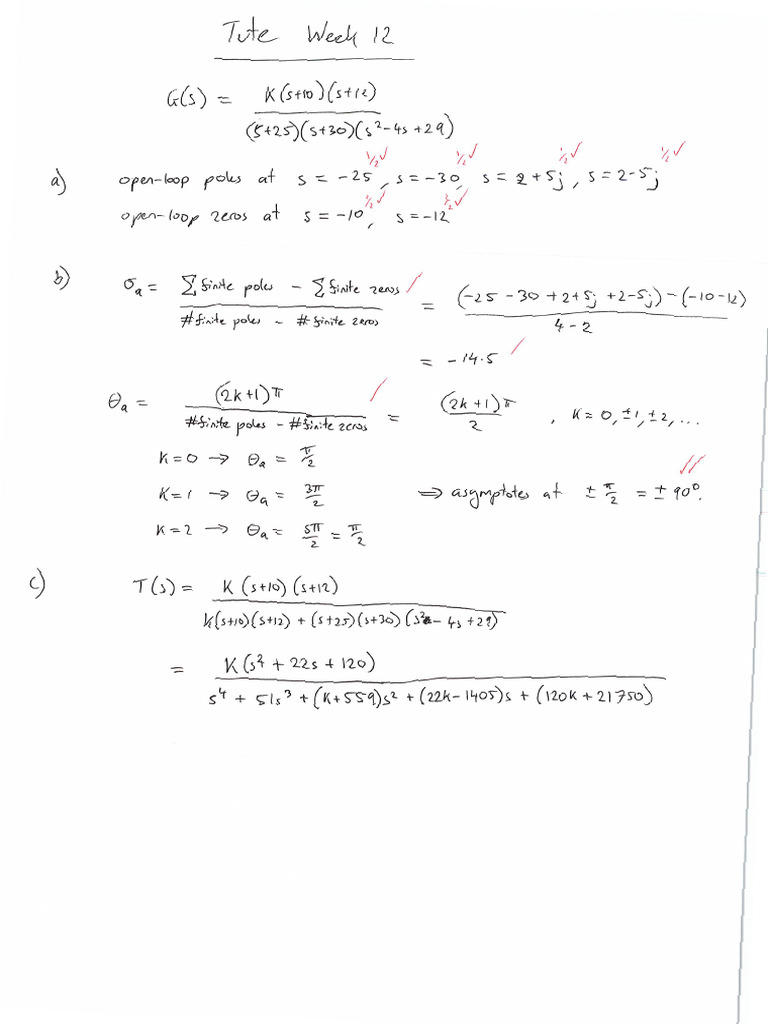 Tute Week 12
G(s) = K(s+10)(s+12)
(s+25)(s+30)(s²-4s+29)
½✓ ½✓ ½✓ ½✓
a) open-loop poles at s = -25, s = -30, s = 2+5j, s = 2-5j
½✓ ½✓
open-loop zeros at s = -10, s = -12
b) σa = Σ finite poles - Σ finite zeros ✓ = (-25 - 30 + 2+5j + 2-5j) - (-10-12)
# finite poles - # finite zeros 4-2
= -14.5 ✓
θa = (2k+1)π ✓ = (2k+1)π , k = 0, ±1, ±2, ...
#finite poles - #finite zeros 2
K=0 → θa = π/2
K=1 → θa = 3π/2 ⇒ asymptotes at ± π/2 = ± 90°. ✓✓
K=2 → θa = 5π/2 = π/2
c) T(s) = K (s+10) (s+12)
K(s+10)(s+12) + (s+25)(s+30)(s²-4s+29)
= K(s² + 22s + 120)
s⁴ + 51s³ + (K+559)s² + (22K-1405)s + (120K+21750)